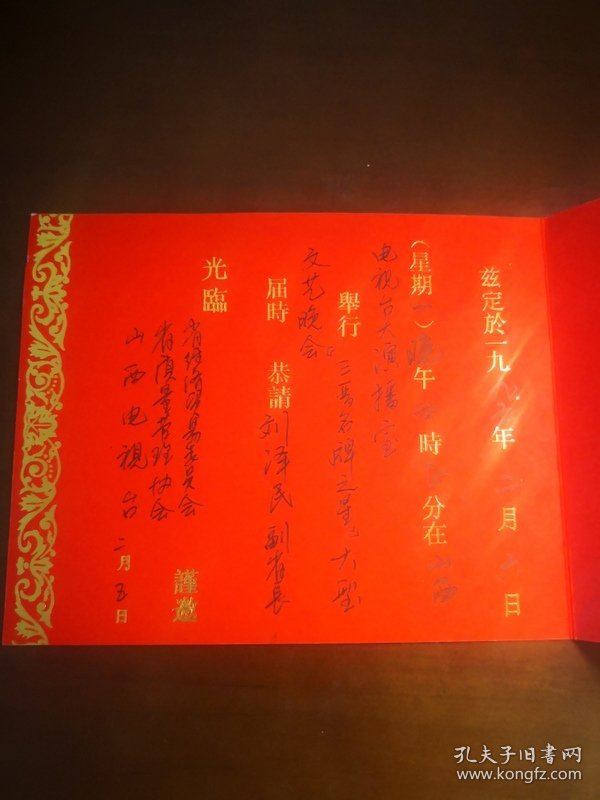 兹定於一九 年 二月 日
(星期一)晚午 時 分在山西
电视台大演播室
舉行“三晋名牌之星”大型
文艺晚会
届時 恭請刘泽民副省长
光臨
省经济贸易委员会
省质量管理协会
山西电视台
謹邀
二月五日
孔夫子旧书网
www.kongfz.com